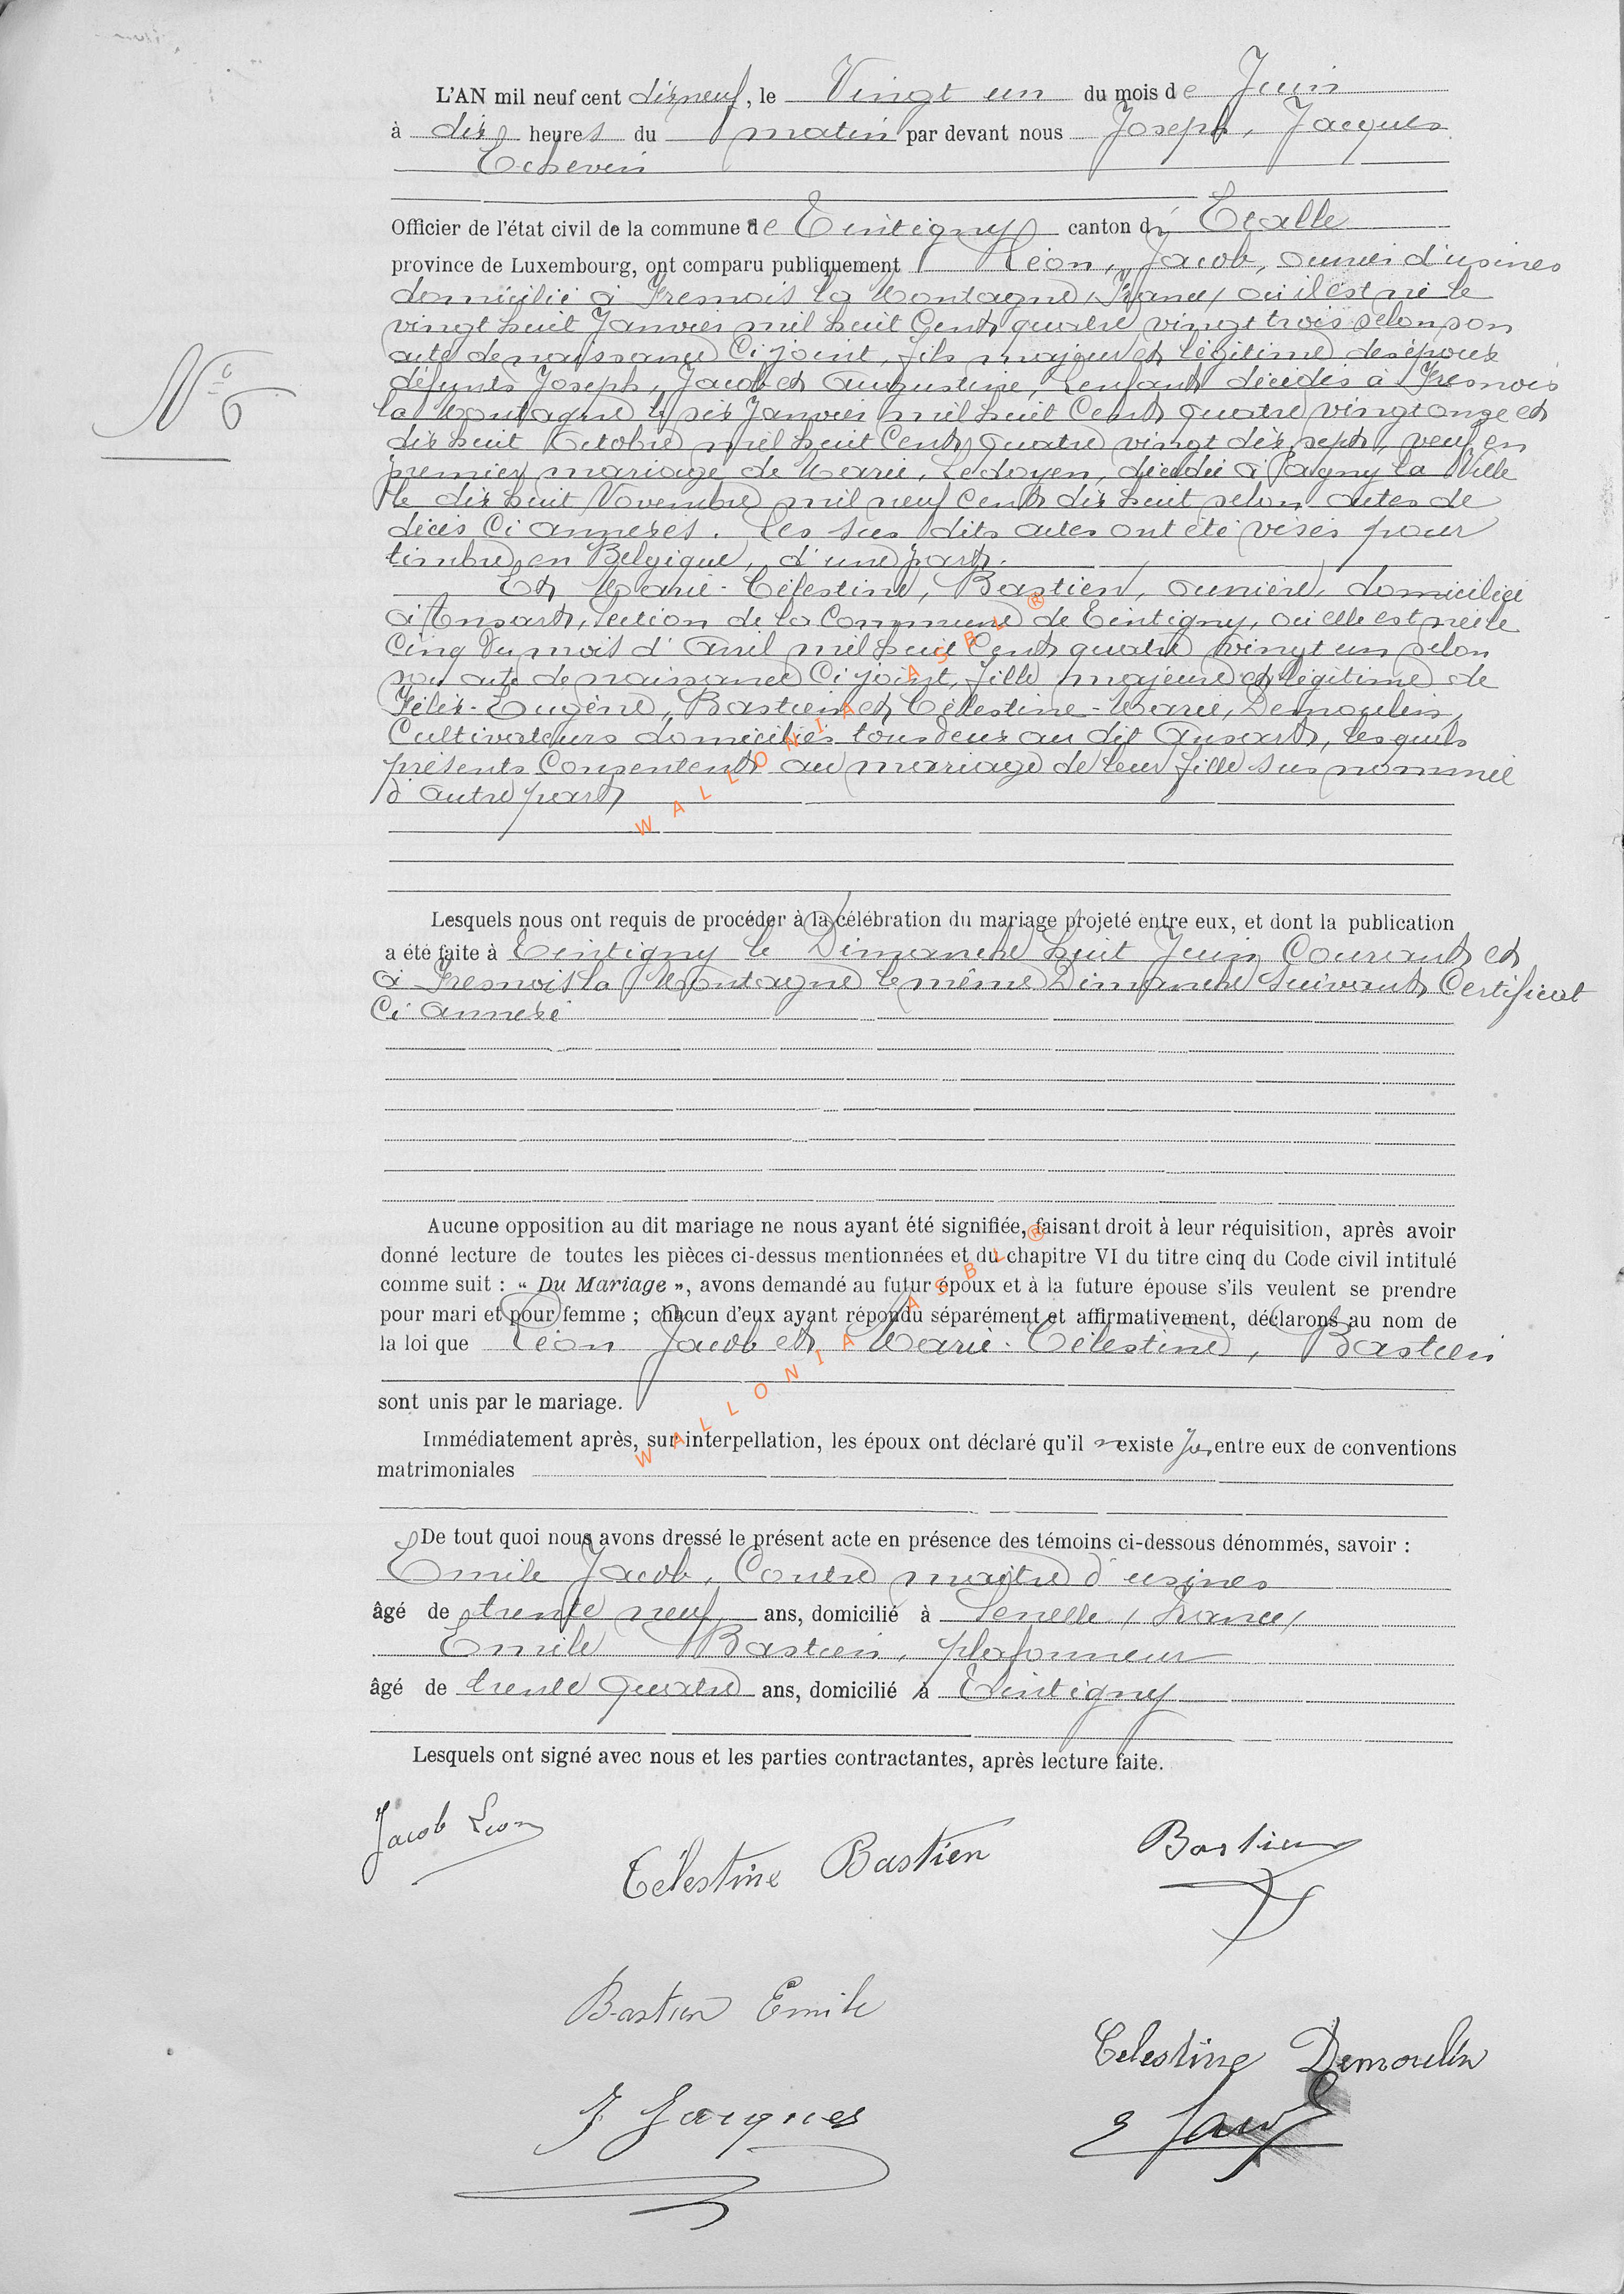 L'AN mil neuf cent dix neuf, le Vingt un du mois de Juin
à dix heures du matin par devant nous Joseph, Jacques
Echevin
Officier de l'état civil de la commune de Tintigny canton d' Etalle
province de Luxembourg, ont comparu publiquement Léon, Jacob, ouvrier d'usines
domicilié à Fresnois la Montagne (France) où il est né le
vingt huit Janvier mil huit Cent quatre vingt trois selon son
acte de naissance Ci joint, fils majeur et légitime des époux
défunts Joseph, Jacob et Augustine, Lenfant décédés à Fresnois
la Montagne le six Janvier mil huit Cent quatre vingt onze et
dix huit Octobre mil huit Cent quatre vingt dix sept, veuf en
premier mariage de Marie, Ledoyen, décédée à Pagny la Ville
le dix huit Novembre mil neuf Cent dix huit selon actes de
décès Ci annexés. Les sus dits actes ont été visés pour
timbre en Belgique, d'une part.
Et Marie-Célestine, Bastien, ouvrière, domiciliée
à Ansart, section de la Commune de Tintigny, où elle est née le
Cinq du mois d'Avril mil huit Cent quatre vingt un selon
son acte de naissance Ci joint, fille majeure et légitime de
Félix-Eugène, Bastien et Célestine-Marie, Demoulin,
Cultivateurs domiciliés tous deux au dit Ansart, lesquels
présents Consentent au mariage de leur fille sus nommée
d'autre part
Nº 6
WALLONIA ASBL ®
Lesquels nous ont requis de procéder à la célébration du mariage projeté entre eux, et dont la publication
a été faite à Tintigny le Dimanche huit Juin Courant et
à Fresnois la Montagne le même Dimanche suivant Certificat
Ci annexé
Aucune opposition au dit mariage ne nous ayant été signifiée, faisant droit à leur réquisition, après avoir
donné lecture de toutes les pièces ci-dessus mentionnées et du chapitre VI du titre cinq du Code civil intitulé
comme suit : « Du Mariage », avons demandé au futur époux et à la future épouse s'ils veulent se prendre
pour mari et pour femme ; chacun d'eux ayant répondu séparément et affirmativement, déclarons au nom de
la loi que Léon Jacob et Marie-Célestine, Bastien
sont unis par le mariage.
WALLONIA ASBL ®
Immédiatement après, sur interpellation, les époux ont déclaré qu'il n'existe pas entre eux de conventions
matrimoniales
De tout quoi nous avons dressé le présent acte en présence des témoins ci-dessous dénommés, savoir :
Emile Jacob, Contre maître d'usines
âgé de trente neuf ans, domicilié à Senelle (France)
Emile Bastien, plafonneur
âgé de trente quatre ans, domicilié à Tintigny
Lesquels ont signé avec nous et les parties contractantes, après lecture faite.
Jacob Léon
Célestine Bastien
Bastien
Bastien Emile
Celestine Demoulin
J Jacques
E Jacob